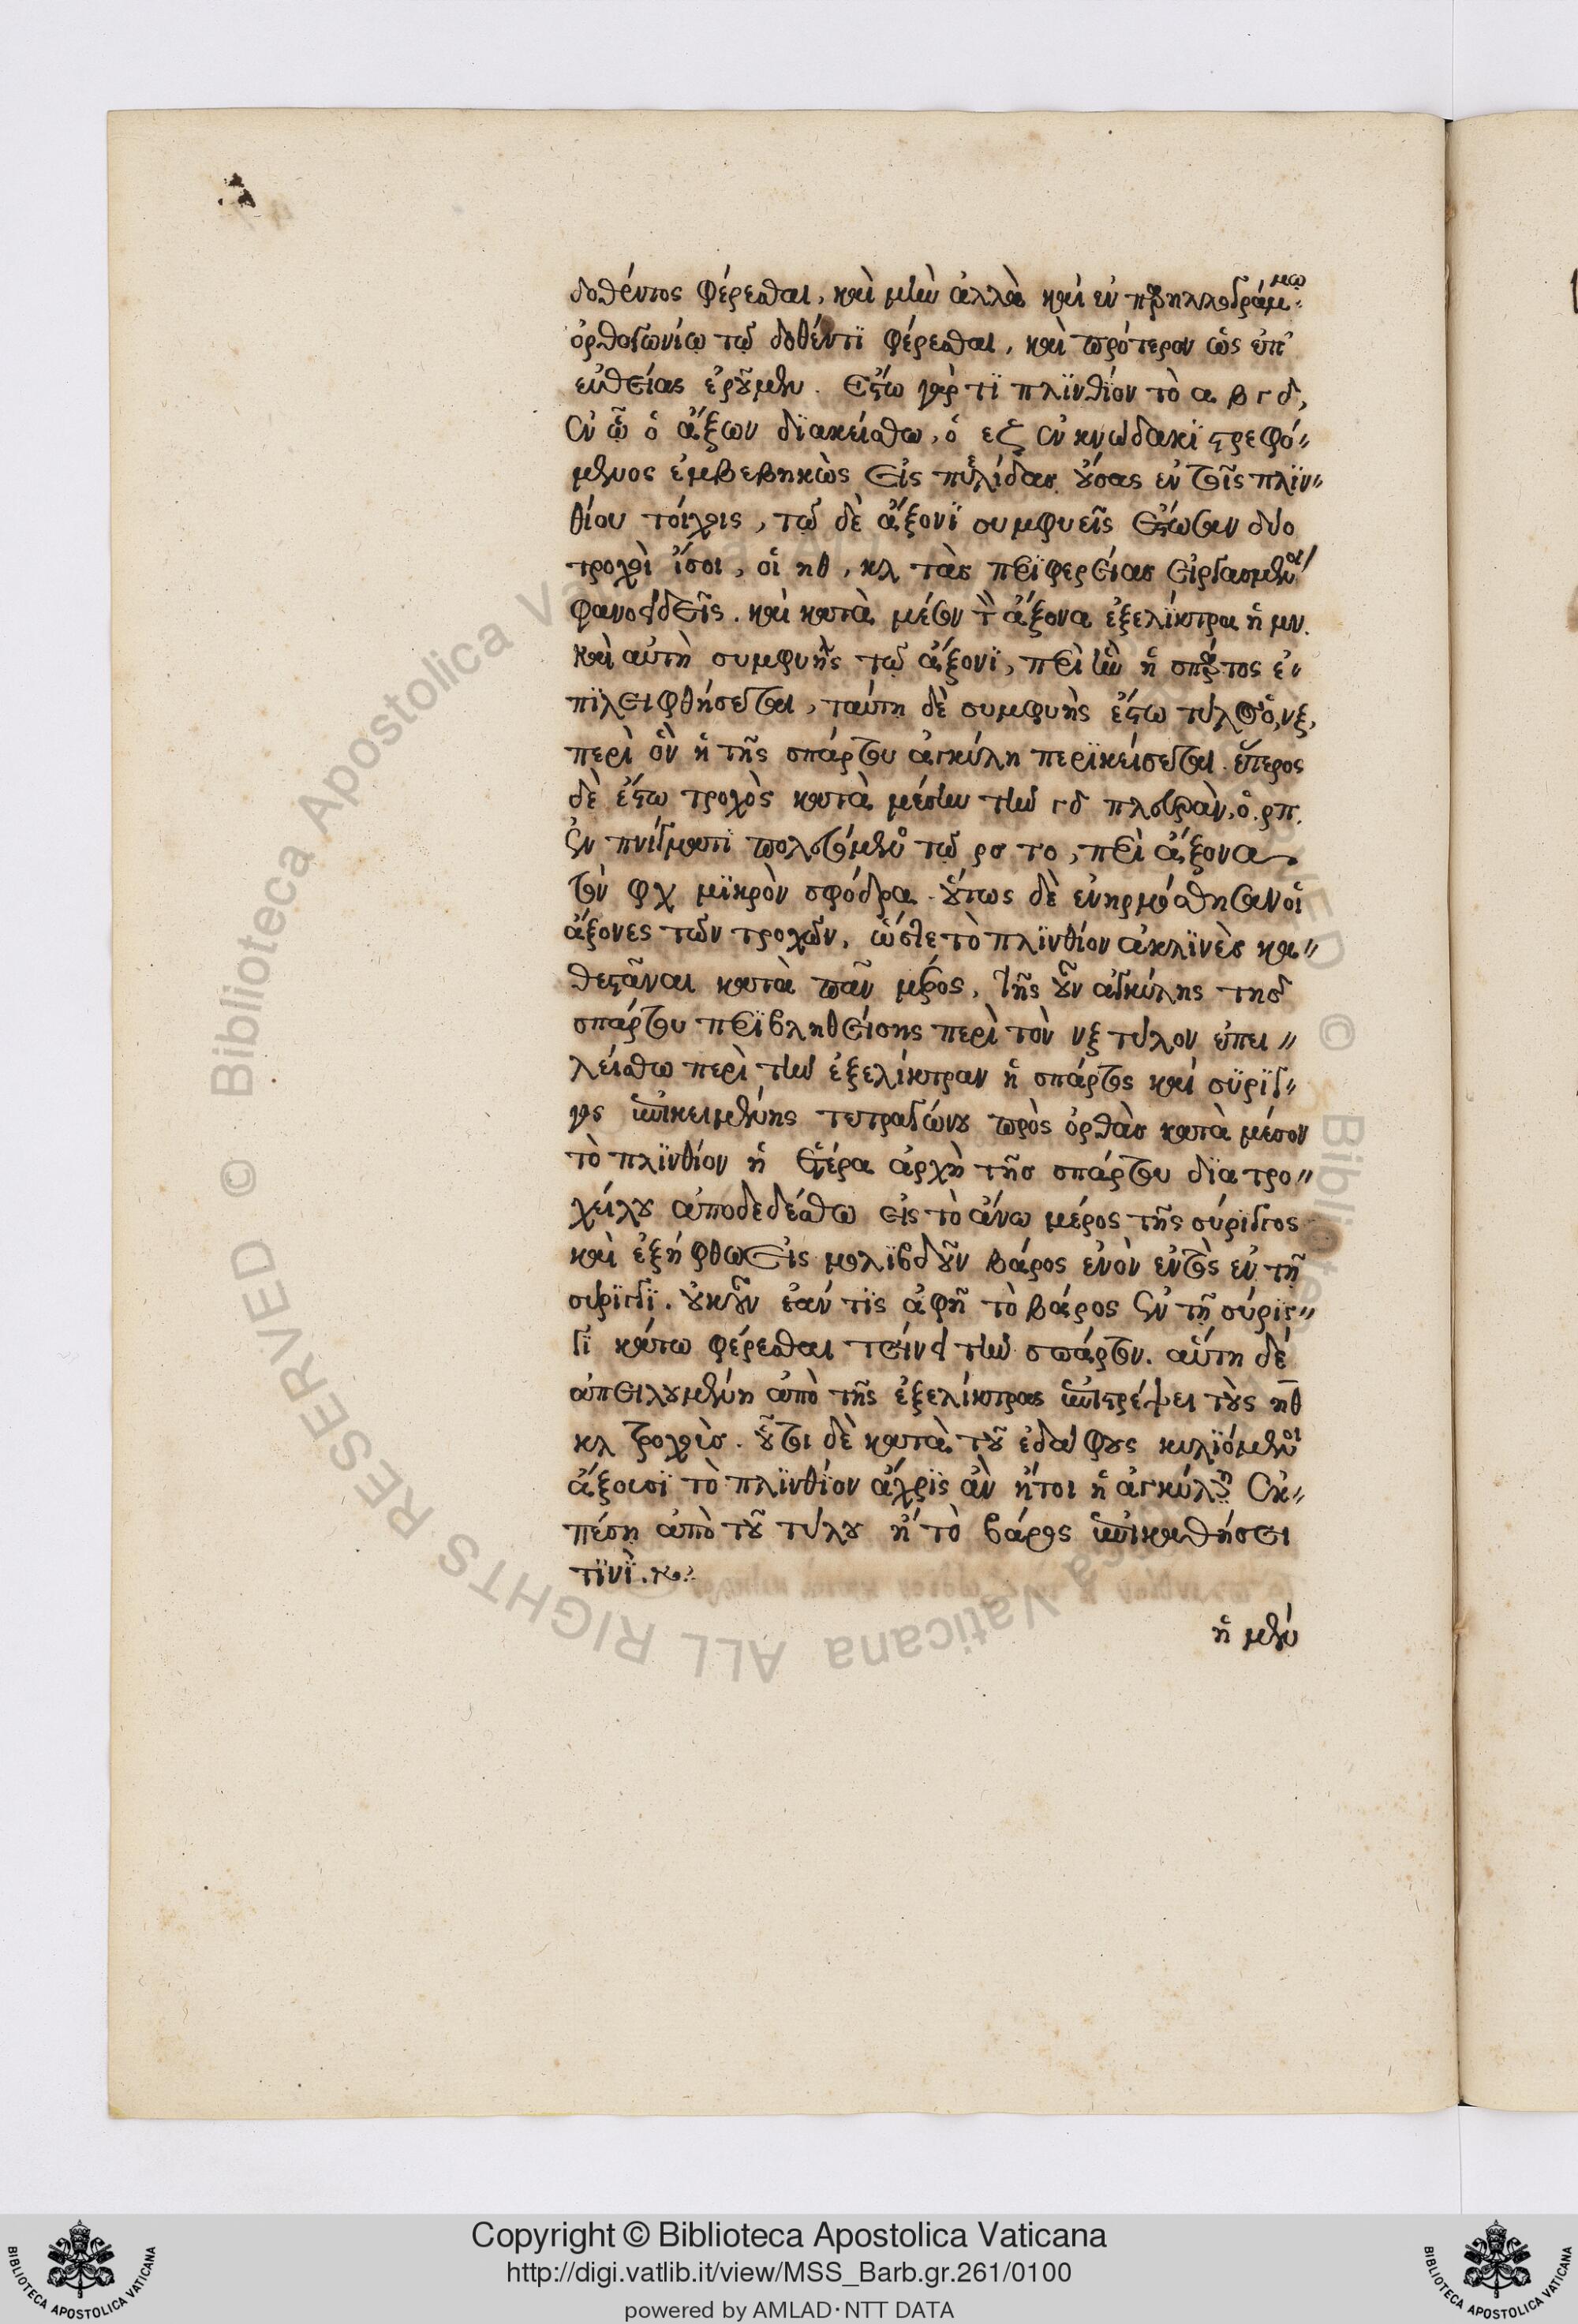 δοθέντος φέρεσθαι, καὶ μὴν ἀλλὰ καὶ ἐν παραλληλογράμμῳ
ὀρθογωνίῳ τῷ δοθέντϊ φέρεσθαι, καὶ πρότερον ὡς ἐπ'
εὐθείας ἐροῦμεν. ἔστω γάρ τϊ πλϊνθΐον τὸ α β γ δ,
ἐν ᾧ ὁ ἄξων δϊακείσθω, ὁ εζ ἐν κνωδακϊ στρεφό"
μενος ἐμβεβηκὼς εἰς πυελίδας οὔσας ἐν τοῖς πλϊν"
θίου τοίχοις, τῷ δὲ ἄξονϊ συμφυεῖς ἔστωσαν δύο
τροχοὶ ἴσοι, οἱ ηθ, κλ τὰς περϊφερείας εἰργασμένοι
φανοειδεῖς. καὶ κατὰ μέσον τὸν ἄξονα ἐξελίκτρα ἡ μν.
καὶ αὐτὴ συμφυὴς τῷ ἄξονϊ, περὶ ἣν ἡ σπάρτος ἐ"
πϊλειφθήσεται, ταύτη δὲ συμφυὴς ἔστω τύλος ὁ, νξ,
περὶ ὃν ἡ τῆς σπάρτου ἀγκύλη περϊκείσεται. ἕτερος
δὲ ἔστω τροχὸς κατὰ μέσην τὴν γδ πλευρὰν, ὁ. ρπ.
ἐν πνίγματϊ πολευόμενος τῷ ρσ το, περὶ ἄξονα
τὸν φχ μϊκρὸν σφόδρα. οὕτως δὲ ἐνηρμόσθησαν οἱ
ἄξονες τῶν τροχῶν, ὥστε τὸ πλϊνθίον ἀκλϊνὲς κα"
θεστᾶναι κατὰ πᾶν μέρος, τῆς οὖν ἀγκύλης τῆς
σπάρτου περϊβληθείσης περὶ τὸν νξ τύλον ἐπει"
λείσθω περὶ τὴν ἐξελίκτραν ἡ σπάρτος καὶ σύρϊγ"
γος ἐπικειμένης τετραγώνου πρὸς ὀρθὰς κατὰ μέσον
τὸ πλϊνθίον ἡ ἑτέρα ἀρχὴ τῆς σπάρτου δϊα τρο"
χείλου ἀποδεδέσθω εἰς τὸ ἄνω μέρος τῆς σύρϊγγος
καὶ ἐξήφθω εἰς μολϊβδοῦν βάρος ἐνὸν ἐντὸς ἐν τῇ
σύρϊγγϊ. οὐκοῦν ἐάν τϊς ἀφῇ τὸ βάρος ἐν τῇ σύρϊγ"
γϊ κάτω φέρεσθαι τείνει τὴν σπάρτον. αὕτη δέ
ἀπειλουμένη ἀπὸ τῆς ἐξελίκτρας ἐπιστρέψει τοὺς ηθ
κλ τροχούς. οὗτοι δὲ κατὰ τοῦ ἐδάφους κυλϊόμενοι
ἄξουσϊ τὸ πλϊνθΐον ἄχρϊς ἂν ἤτοι ἡ ἀγκύλη ἐκ"
πέσῃ ἀπὸ τοῦ τύλου ἢ τὸ βάρος ἐπικαθήσει
τϊνϊ.
ἡ μὲν
Copyright © Biblioteca Apostolica Vaticana
http://digi.vatlib.it/view/MSS_Barb.gr.261/0100
powered by AMLAD·NTT DATA
BIBLIOTECA APOSTOLICA VATICANA
BIBLIOTECA APOSTOLICA VATICANA